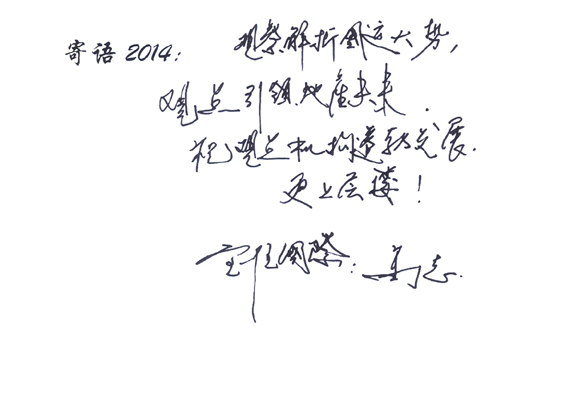 寄语 2014: 观察解析国运大势,
观点引领地产未来.
祝观点机构蓬勃发展.
更上层楼!
宝佳国际: 高志.